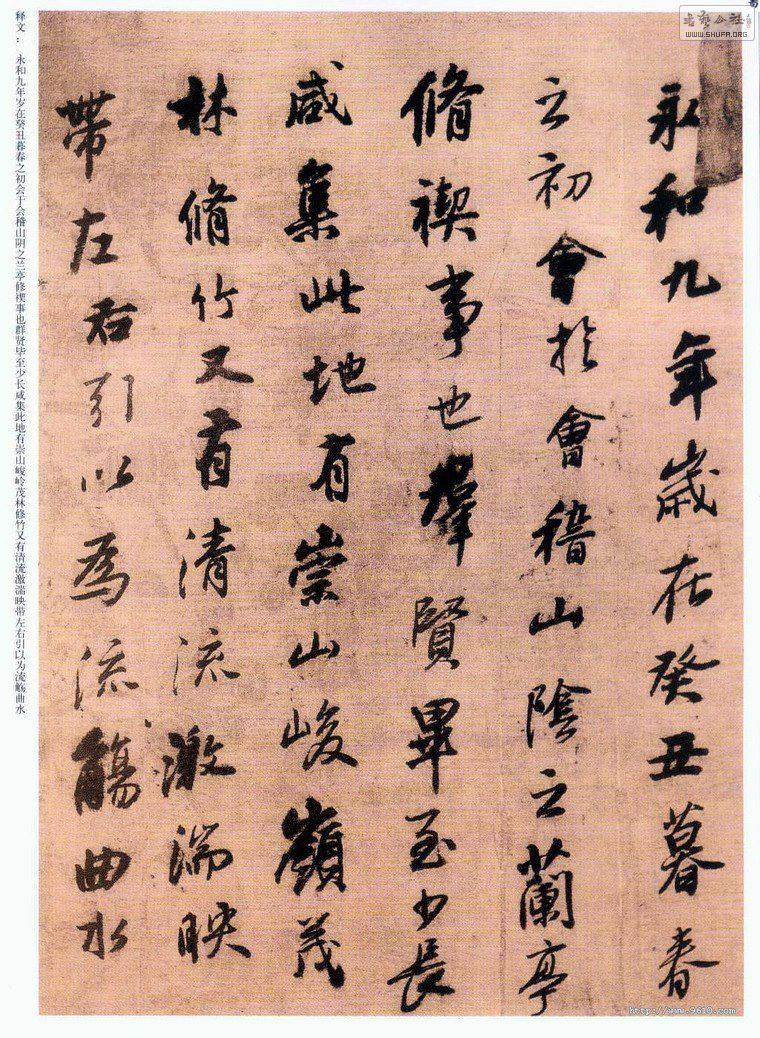 永和九年歲在癸丑暮春
之初會於會稽山陰之蘭亭
脩禊事也羣賢畢至少長
咸集此地有崇山峻嶺茂
林脩竹又有清流激湍映
帶左右引以為流觴曲水
释文： 永和九年岁在癸丑暮春之初会于会稽山阴之兰亭修禊事也群贤毕至少长咸集此地有崇山峻岭茂林修竹又有清流激湍映带左右引以为流觞曲水
书艺公社
WWW.SHUFA.ORG
http://www.9610.com